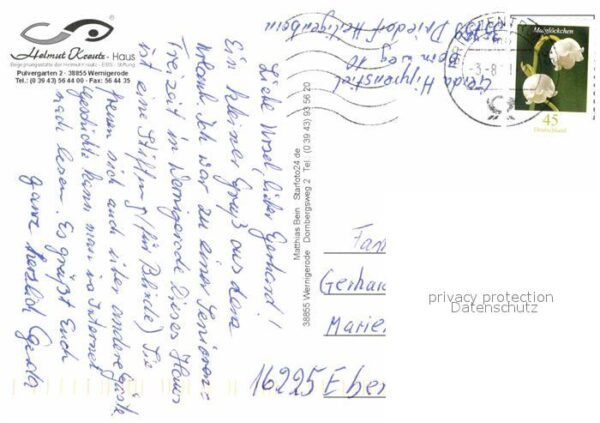 Helmut Kreutz - Haus
Begegnungsstätte der Helmut Kreutz - Stiftung
Pulvergarten 2 - 38855 Wernigerode
Tel.: (0 39 43) 56 44 00 - Fax: 56 44 35
Liebe Ursel, lieber Gerhard!
Ein kleiner Gruß aus dem
Ich war zu einer Senioren=
Freizeit in Wernigerode Dieses Haus
ist eine Stiftung (für Blinde) Sie
freuen sich auch über andere Gäste
Geschichte kann man im Internet
nach lesen. Es grüßt Euch
ganz herzlich Gerda
Matthias Bein Starfoto24.de
38855 Wernigerode Dornbergsweg 2 Tel. (0 39 43) 93 56 20
Gerda
10
Driedorf Heiligenborn
Maiglöckchen
45
Deutschland
Fam
Gerhar
Marie
16225 Eber
privacy protection
Datenschutz